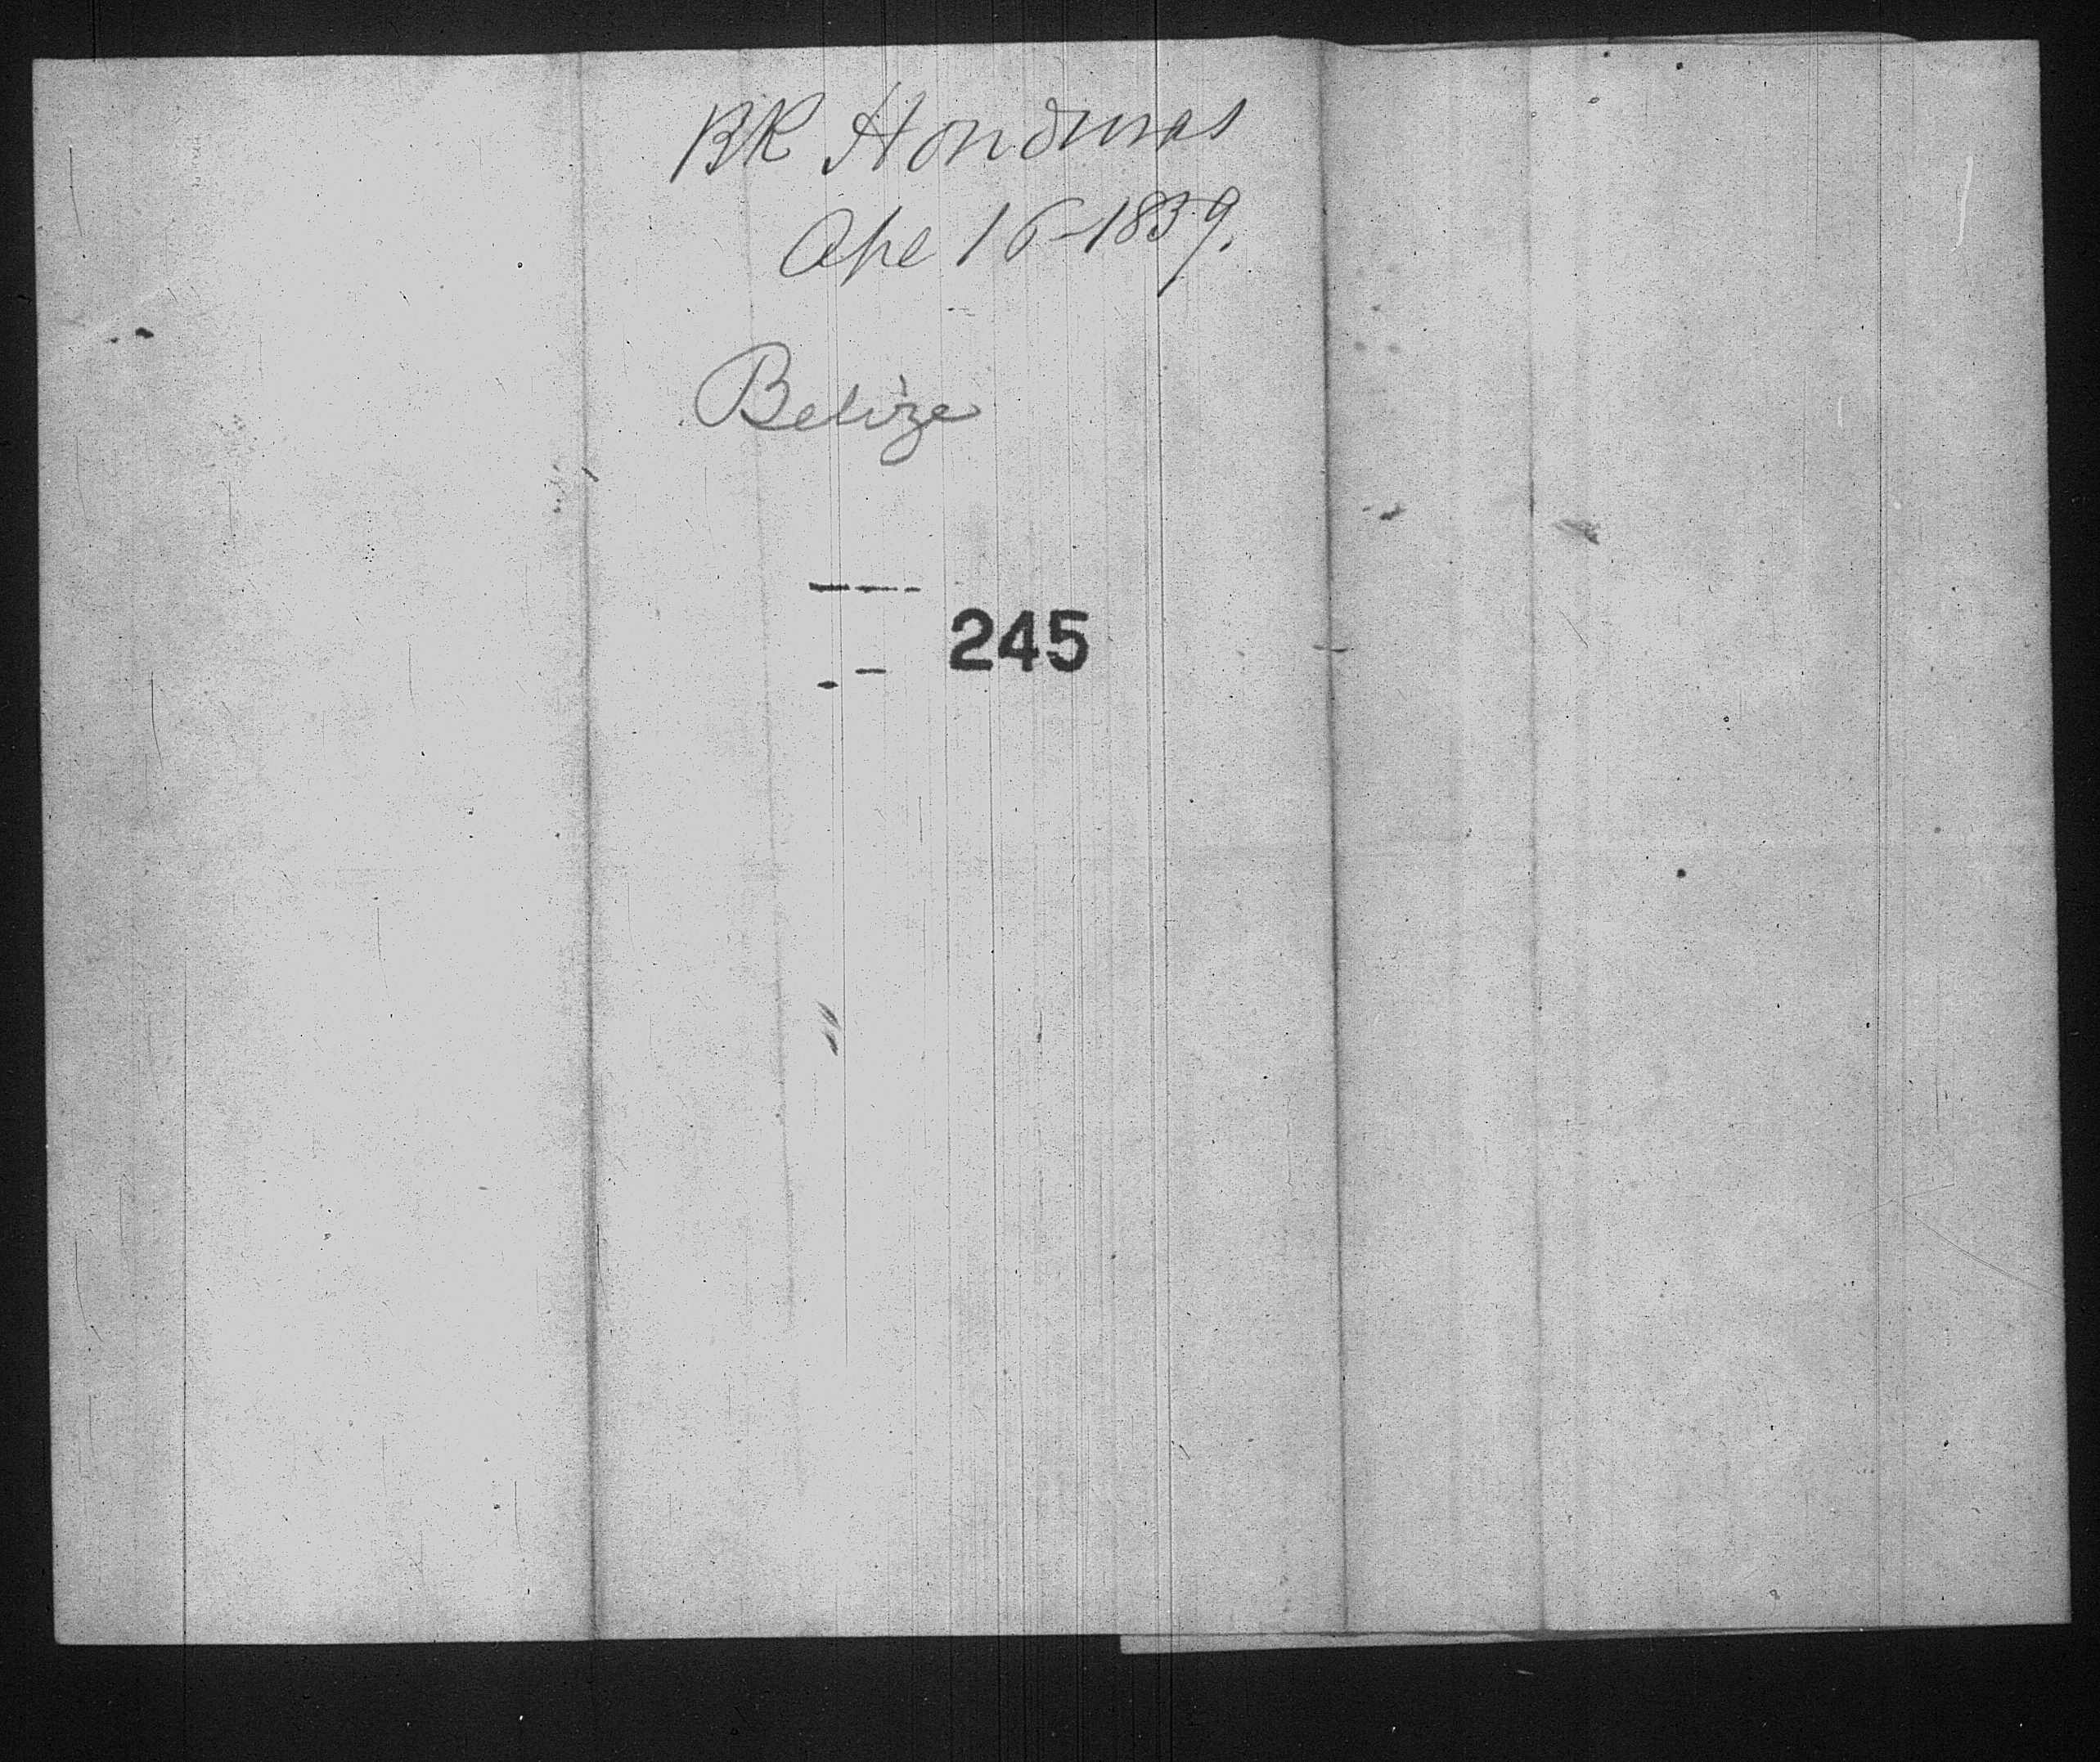 BR Honduras
Ape 16-1839.
Belize
245